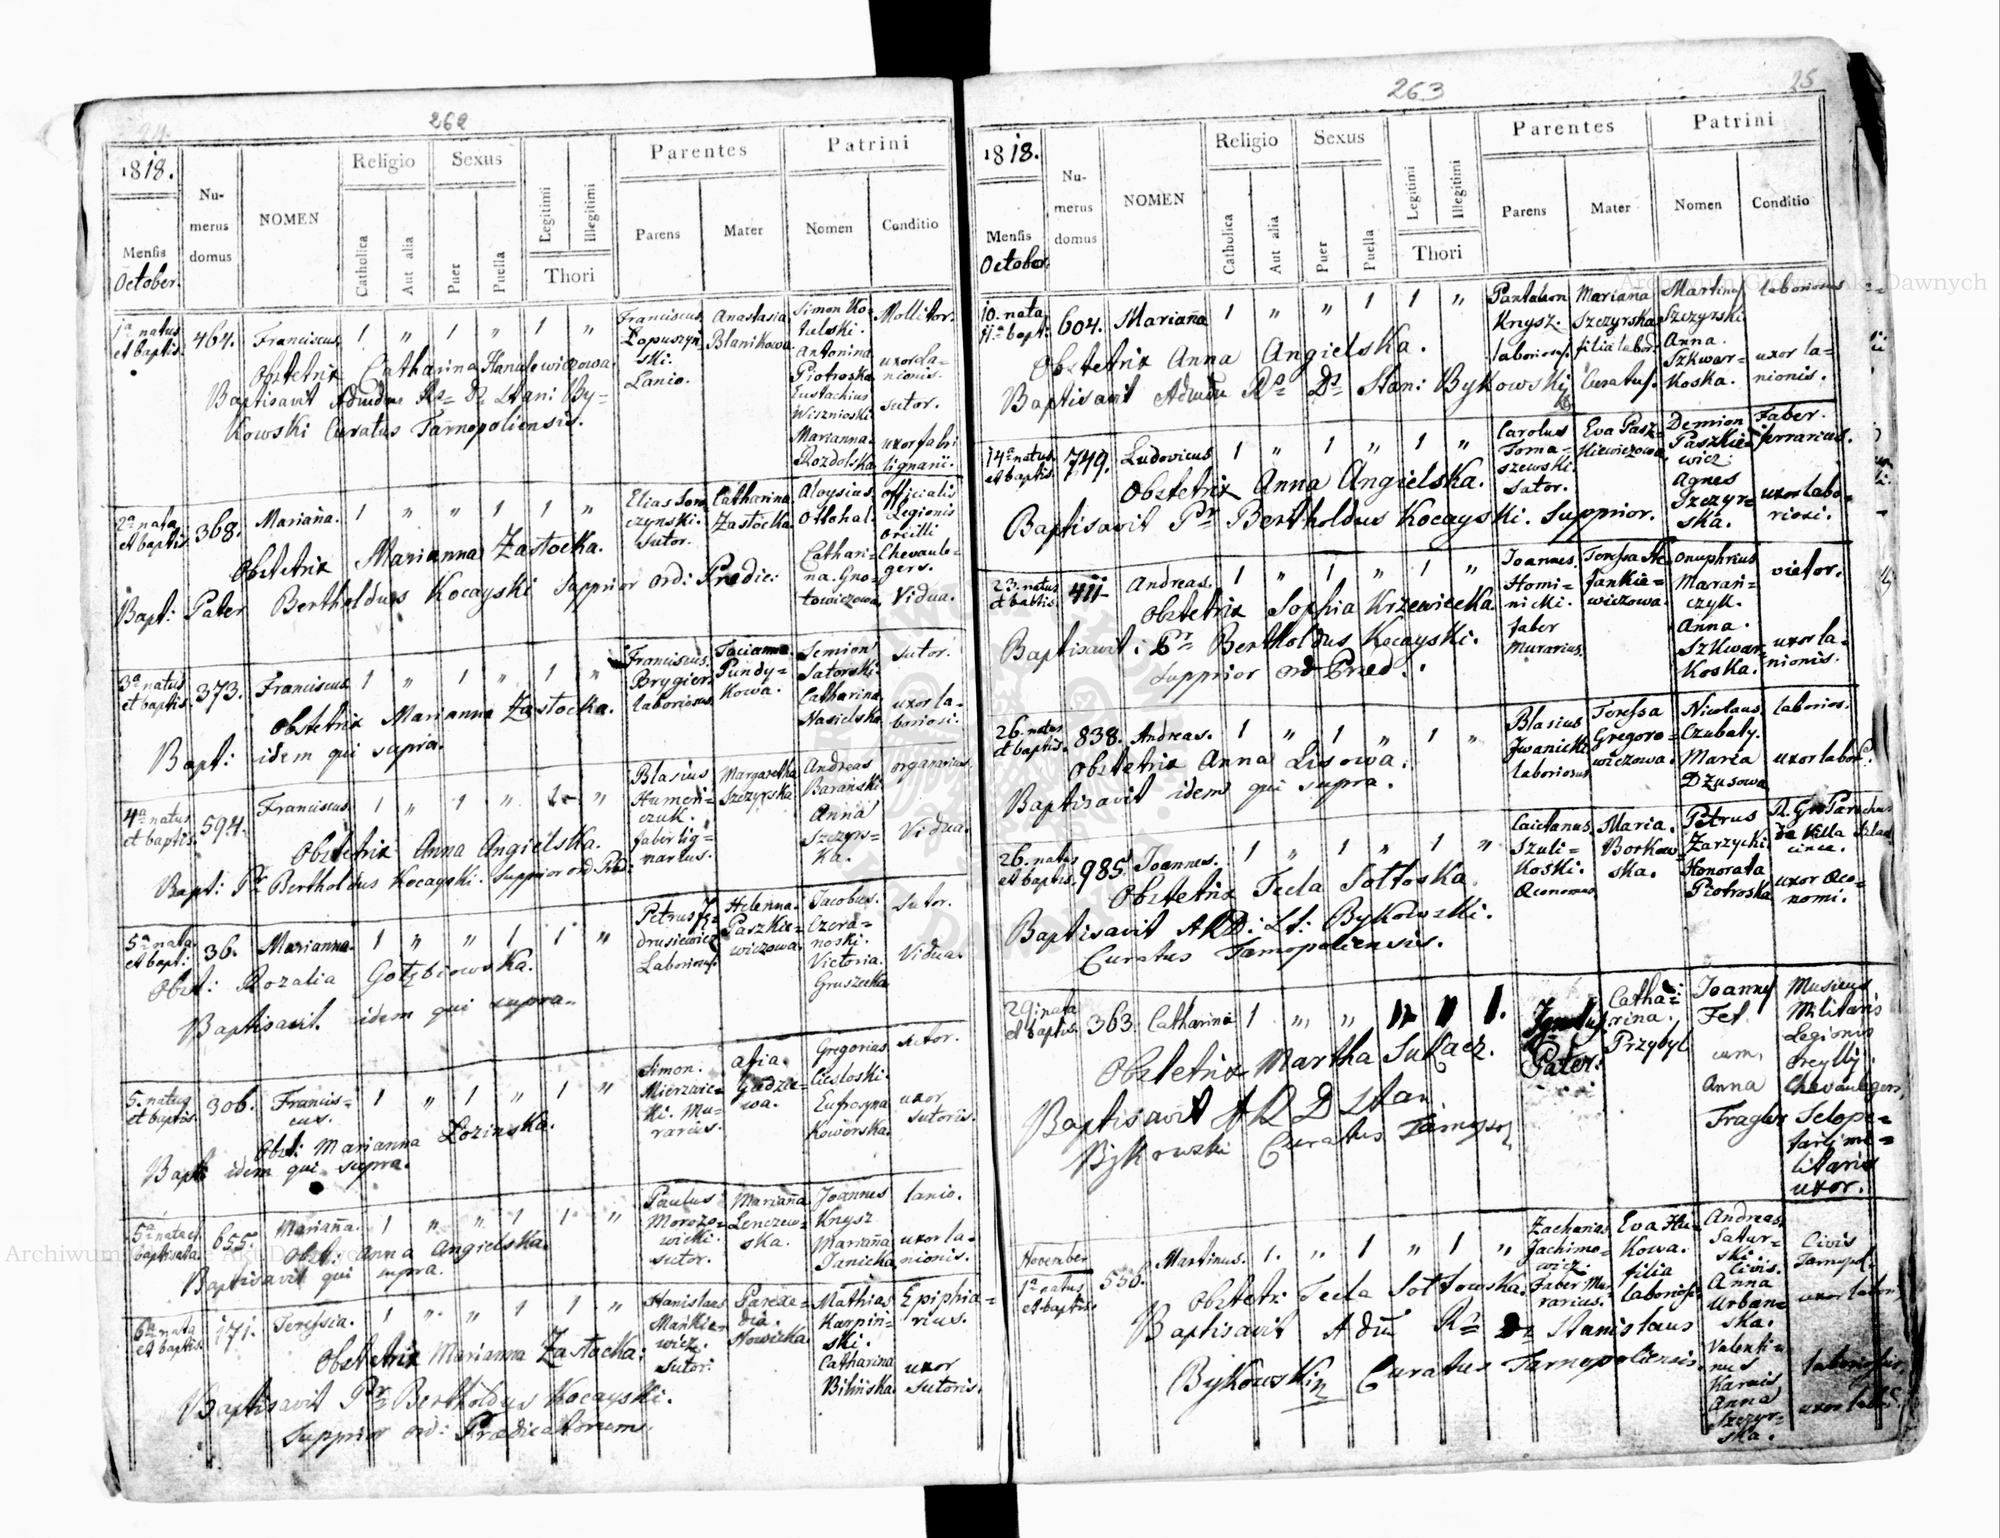 24.
262
1818.
Mensis
October.
Numerus domus
NOMEN
Religio
Catholica
Aut alia
Sexus
Puer
Puella
Legitimi
Illegitimi
Thori
Parentes
Parens
Mater
Patrini
Nomen
Conditio
1a natus et baptis.
464.
Franciscus
1 " 1 " 1 "
Franciscus Łopuszyń-
ski.
Lanio.
Anastasia
Blanikowa
Simon Ko-
Antonina
Piotroska
Eustachius
Wisznioski
Marianna
Rozdolska
Mollitor.
uxor la-
nionis.
sutor.
uxor fabri
lignarii.
Obstetrix Catharina Hanulewiczowa.
Baptisavit Admdum Rs Ds Stani By-
kowski Curatus Tarnopoliensis.
2a nata
et baptis.
368.
Mariana.
1 " " 1 1 "
Elias Som
czynski.
Sutor.
Catharina
Zastocka
Aloysius
Ottohal.
Cathari-
na Gno-
towiczowa
officialis
Legionis
Oreilli
Chevaule-
gers.
Vidua.
Obstetrix Marianna Zastocka.
Bapt: Pater Bertholdus Kocayski Supprior ord: Predic:
3a natus
et baptis.
373.
Franciscus
1 " 1 " 1 "
Franciscus
Brygier
laboriosus
Tacianna
Pundy-
kowa.
Semion
Satorski
Catharina
Hasielska
Sutor.
uxor la-
boriosi.
Obstetrix Marianna Zastocka.
Bapt: idem qui supra.
4a natus
et baptis.
594.
Franciscus
1 " 1 " 1 "
Blasius
Humeni-
czuk.
faber lig-
narius.
Margaretha
Szczyrska
Andreas
Baranski.
Anna
Szczyrs-
ka.
organarius.
Vidua.
Obstetrix Anna Angielska.
Bapt: Pr Bertholdus Kocayski. Supprior ord Pred:
5a nata
et bapt:
36.
Marianna.
1 " " 1 1 "
Petrus Ję-
drusiewicz
Laborios.
Helenna.
Paszkie-
wiczowa.
Jacobus.
Czera-
noski.
Victoria.
Gruszecka
Sutor.
Vidua.
Obst: Rozalia Gołębiowska.
Baptisavit idem qui supra.
5. natus
et baptis.
306.
Francis-
cus.
1 " 1 " 1 "
Simon.
Mierzwic-
ki. Mu-
rarius.
Afia.
Gudzie-
wa.
Gregorius
Ciesloski.
Eufrosyna
Koworska.
Sutor.
uxor
Sutoris.
Obst: Marianna Łozinska.
Bapt: idem qui supra.
5a nata et
baptisata.
655
Mariana.
1 " " 1 1 "
Paulus
Morozo-
wicki.
sutor.
Mariana
Lenczew-
ska.
Joannes
Knysz
Mariana
Janicka
lanio.
uxor la-
nionis.
Obst: Anna Angielska.
Baptisavit qui supra.
6ta nata
et baptis.
171.
Teressia.
1 " " 1 1 "
Stanislaus
Mankie-
wicz.
Sutor:
Parexe-
dia.
Nowicka
Mathias
Karpin-
ski.
Catharina
Bilińska
Epiphia-
rius.
uxor
Sutoris.
Obstetrix Marianna Zastocka:
Baptisavit Pr Bertholdus Kocayski.
Supprior ord: Prædicatorum.
263
25
1818.
Mensis
October.
Numerus domus
NOMEN
Religio
Catholica
Aut alia
Sexus
Puer
Puella
Legitimi
Illegitimi
Thori
Parentes
Parens
Mater
Patrini
Nomen
Conditio
10. nata
11a bapt.
604.
Mariana
1 " " 1 1 "
Pantaleon
Knysz.
laborios.
Mariana
Szczyrska
filia labor.
Martiny
Szczyrski
Anna.
Szkwar-
koska.
laboriosus
uxor la-
nionis.
Obstetrix Anna Angielska.
Baptisavit Admdu Rs Ds Stani Bykowski Curatus.
14a natus
et baptis.
749.
Ludovicus
1 " 1 " 1 "
Carolus
Toma-
szewski.
Sator.
Eva Pasz-
kiewiczowa
Demion
Paszkie-
wicz.
Agnes
Szczyr-
ska.
Faber
ferrarius.
uxor labo-
riosi.
Obstetrix Anna Angielska.
Baptisavit Pr Bertholdus Kocayski. Supprior.
23. natus
et baptis.
411
Andreas.
1 " 1 " 1 "
Joannes
Homi-
nicki.
faber
murarius.
Teressa Ste-
fankie-
wiczowa.
Onuphrius
Marań-
czyk.
Anna.
Szkwar-
koska.
vietor.
uxor la-
nionis.
Obstetrix Sophia Krzewiecka
Baptisavit: Pr Bertholdus Kocayski.
Supprior ord Pred:
26. natus
et baptis.
838.
Andreas.
1 " 1 " 1 "
Blasius
Jwanicki
Laboriosus
Teressa
Gregoro-
wiczowa.
Nicolaus
Czubaty.
Maria
Dzusowa
laborios.
uxor labor.
Obstetrix Anna Lisowa.
Baptisavit idem qui supra.
26. natus
et baptis.
985
Joannes.
1 " 1 " 1 "
Caietanus
Szuli-
koski.
Œconomus
Maria.
Borkow-
ska.
Petrus
Zarzycki
Honorata
Piotroska
R. Gr. Parochus
de Villa
uxor Œco-
nomi.
Obstetrix Tecla Sottoska.
Baptisavit ARD: St: Bykowski.
Curatus Tarnopoliensis.
29. nata
et baptis.
363.
Catharina
1 " "
1.
Pater:
Catha-
rina.
Przybył
Joanny
Fet.
cum,
Anna
Fragler
Musicus
Militaris
Legionis
Oreylly.
Chevaulegers,
Selope-
farii mi-
litaris
uxor.
Obstetrix Martha Sukacz.
Baptisavit A R D Stan
Bykowski Curatus Tarnopol
November
1a natus
et baptis.
556.
Martinus.
1. " 1 " 1 "
Zacharias
Jachimo-
wicz.
Faber Mu-
rarius.
Eva Hu-
kowa.
filia
laborios.
Andreas
Satur-
ski.
Civis.
Anna
Urban-
ska.
Valenti-
nus
Karais
Anna
Szczyr-
ska.
Civis
Tarnopol.
uxor labori.
laboriosus.
uxor labo.
Obstetri: Tecla Sottowska.
Baptisavit Adm Rs Ds Stanislaus
Bykowski Curatus Tarnopoliensis.
Archiwum Główne Akt Dawnych